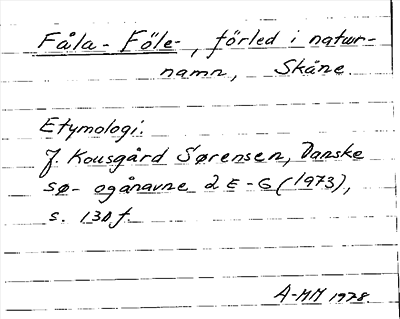 Fåla- Föle-, förled i natur-
namn, Skåne
Etymologi:
J. Kousgård Sørensen, Danske
sø- og ånavne 2 E-G (1973),
s. 130 f.
A-MM 1978